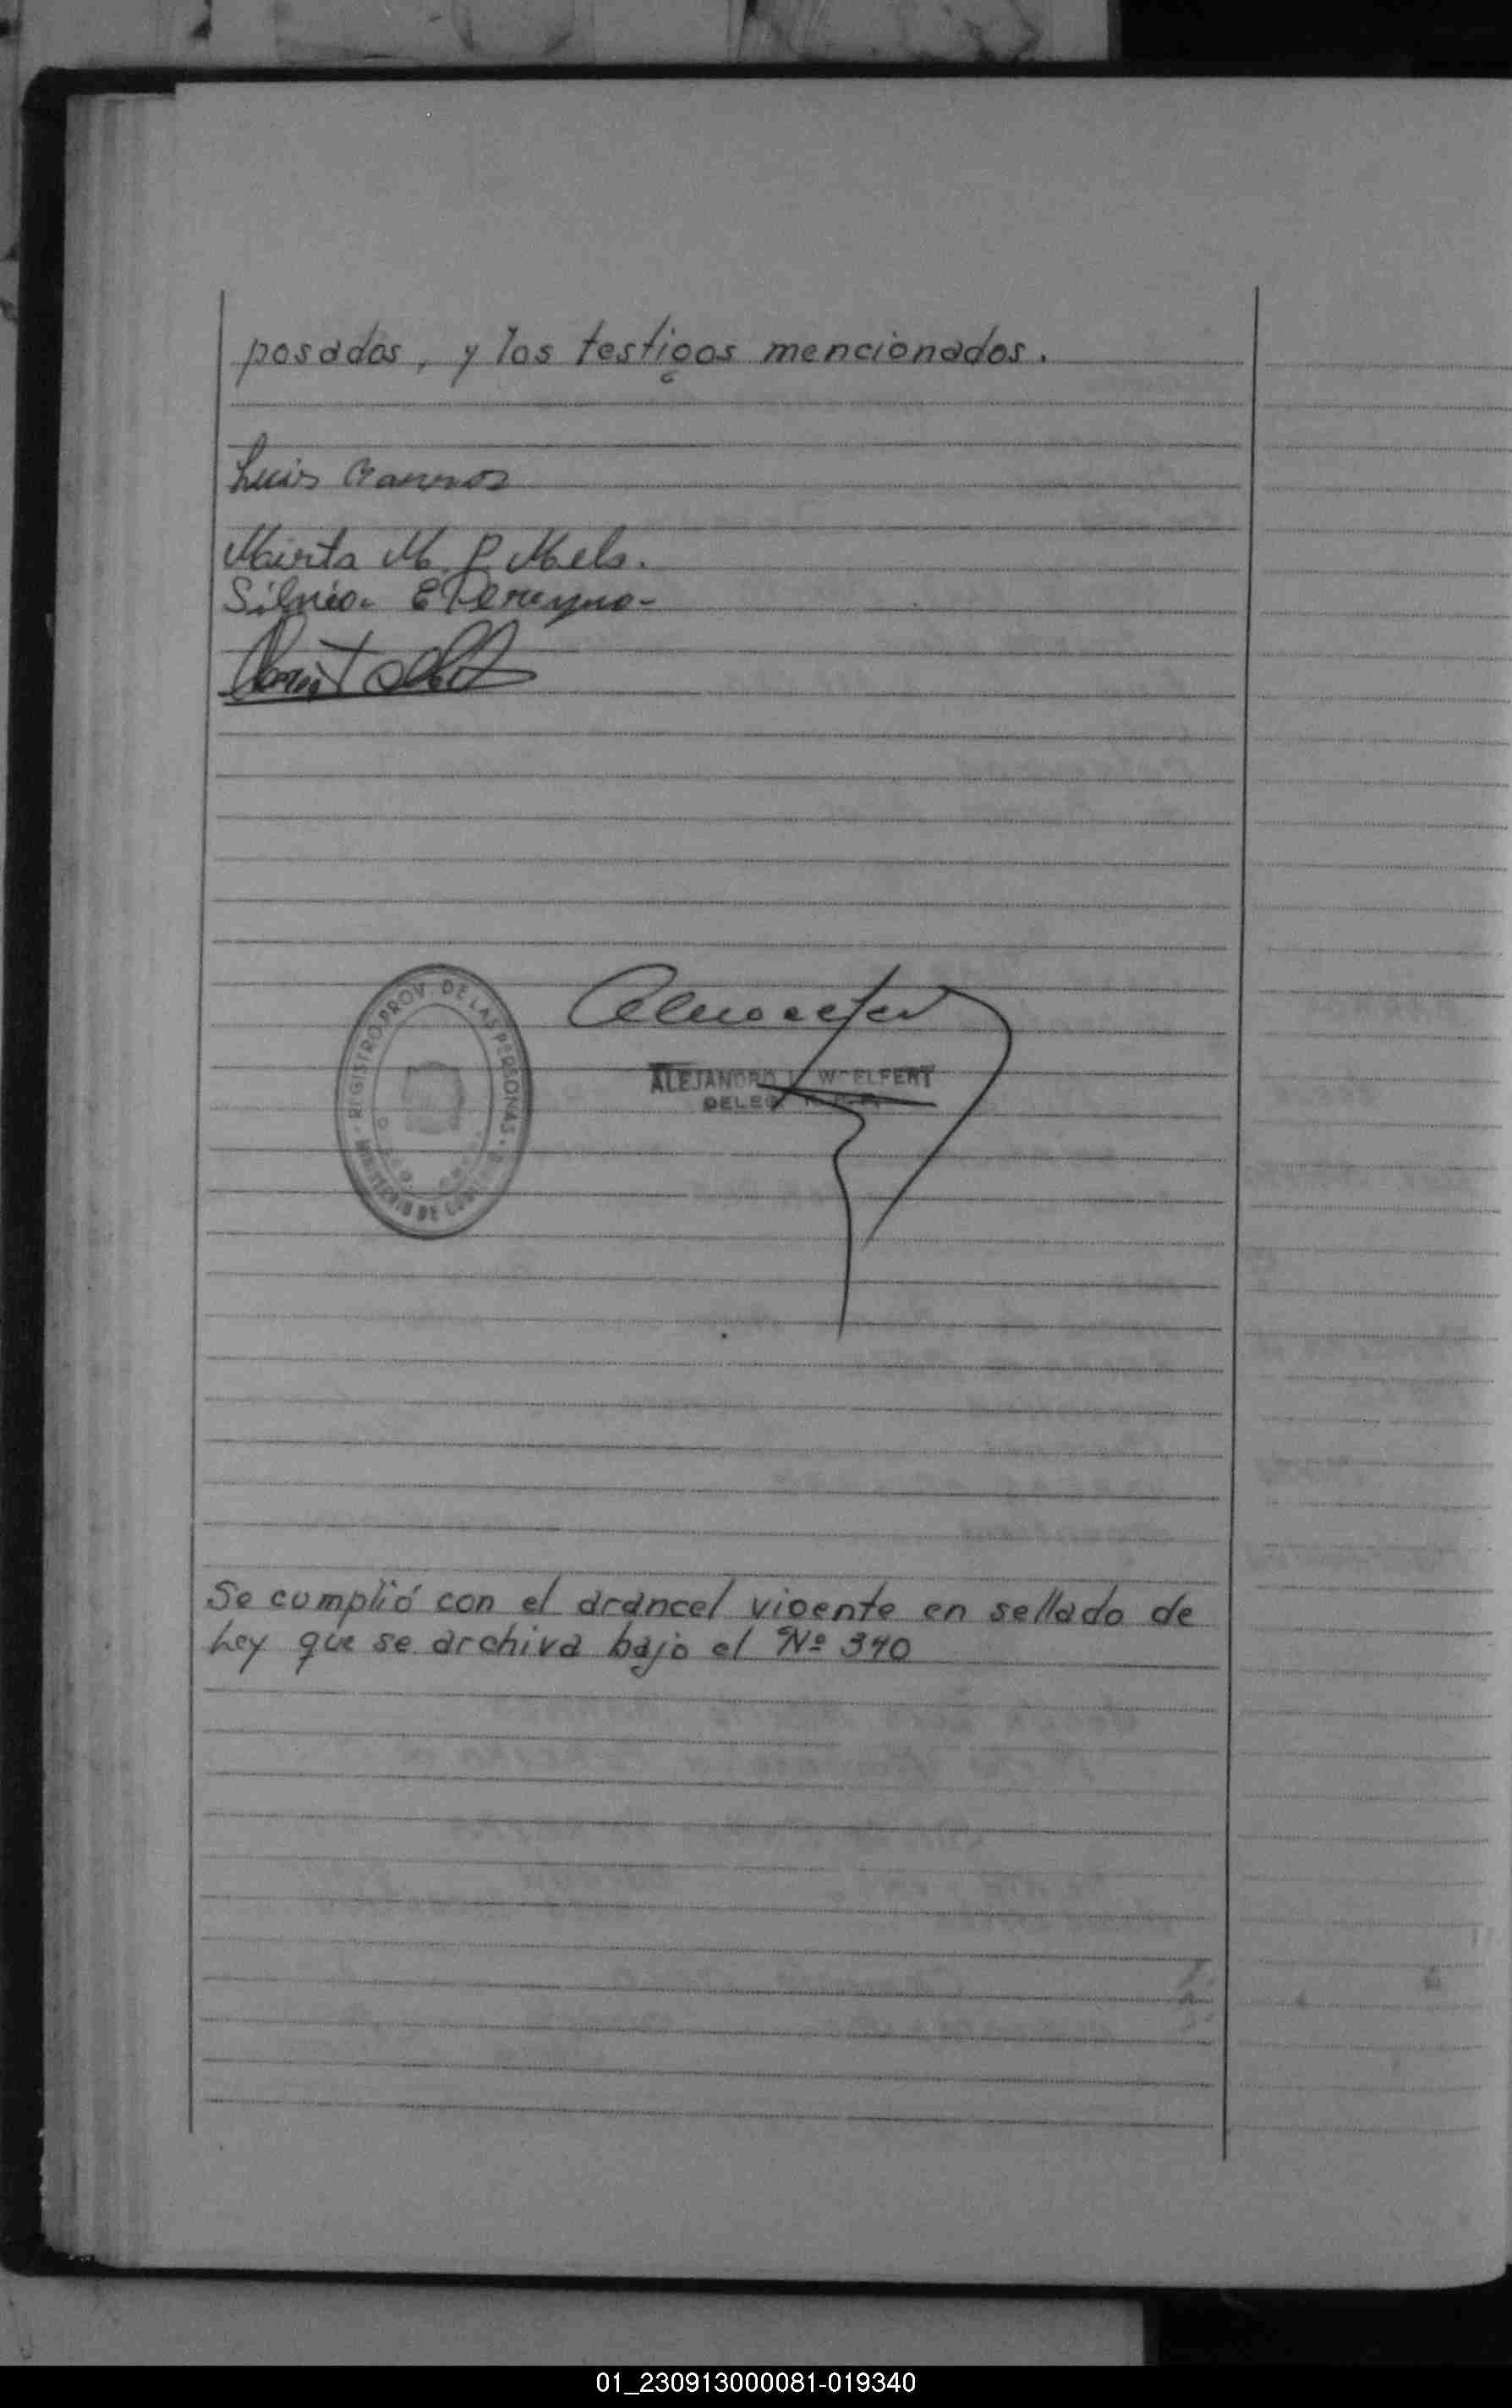 posados, y los testigos mencionados.
Luis
Mirta M. P. Melo.
Silvia E Pereyra-
REGISTRO PROV. DE LAS PERSONAS
MINISTERIO DE
ALEJANDRO WOELFERT
DELEG. R.P.P.
Se cumplió con el arancel vigente en sellado de
Ley que se archiva bajo el Nº 340
01_230913000081-019340